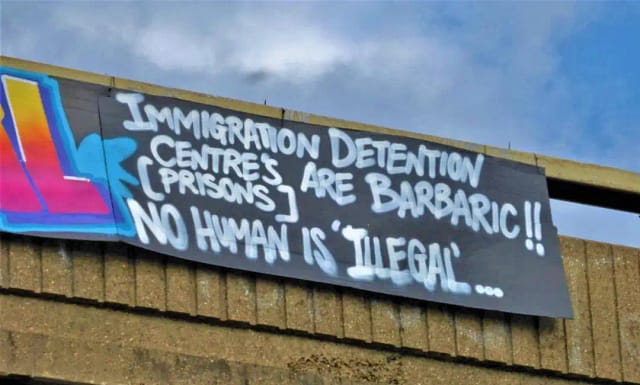 IMMIGRATION DETENTION
CENTRE'S
[PRISONS] ARE BARBARIC!!
NO HUMAN IS 'ILLEGAL'...